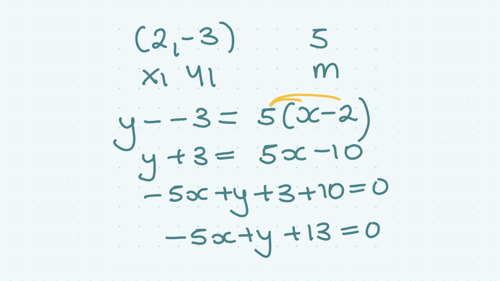 (2,-3) 5
x1 y1 m
y--3= 5(x-2)
y+3= 5x-10
-5x+y+3+10=0
-5x+y+13=0